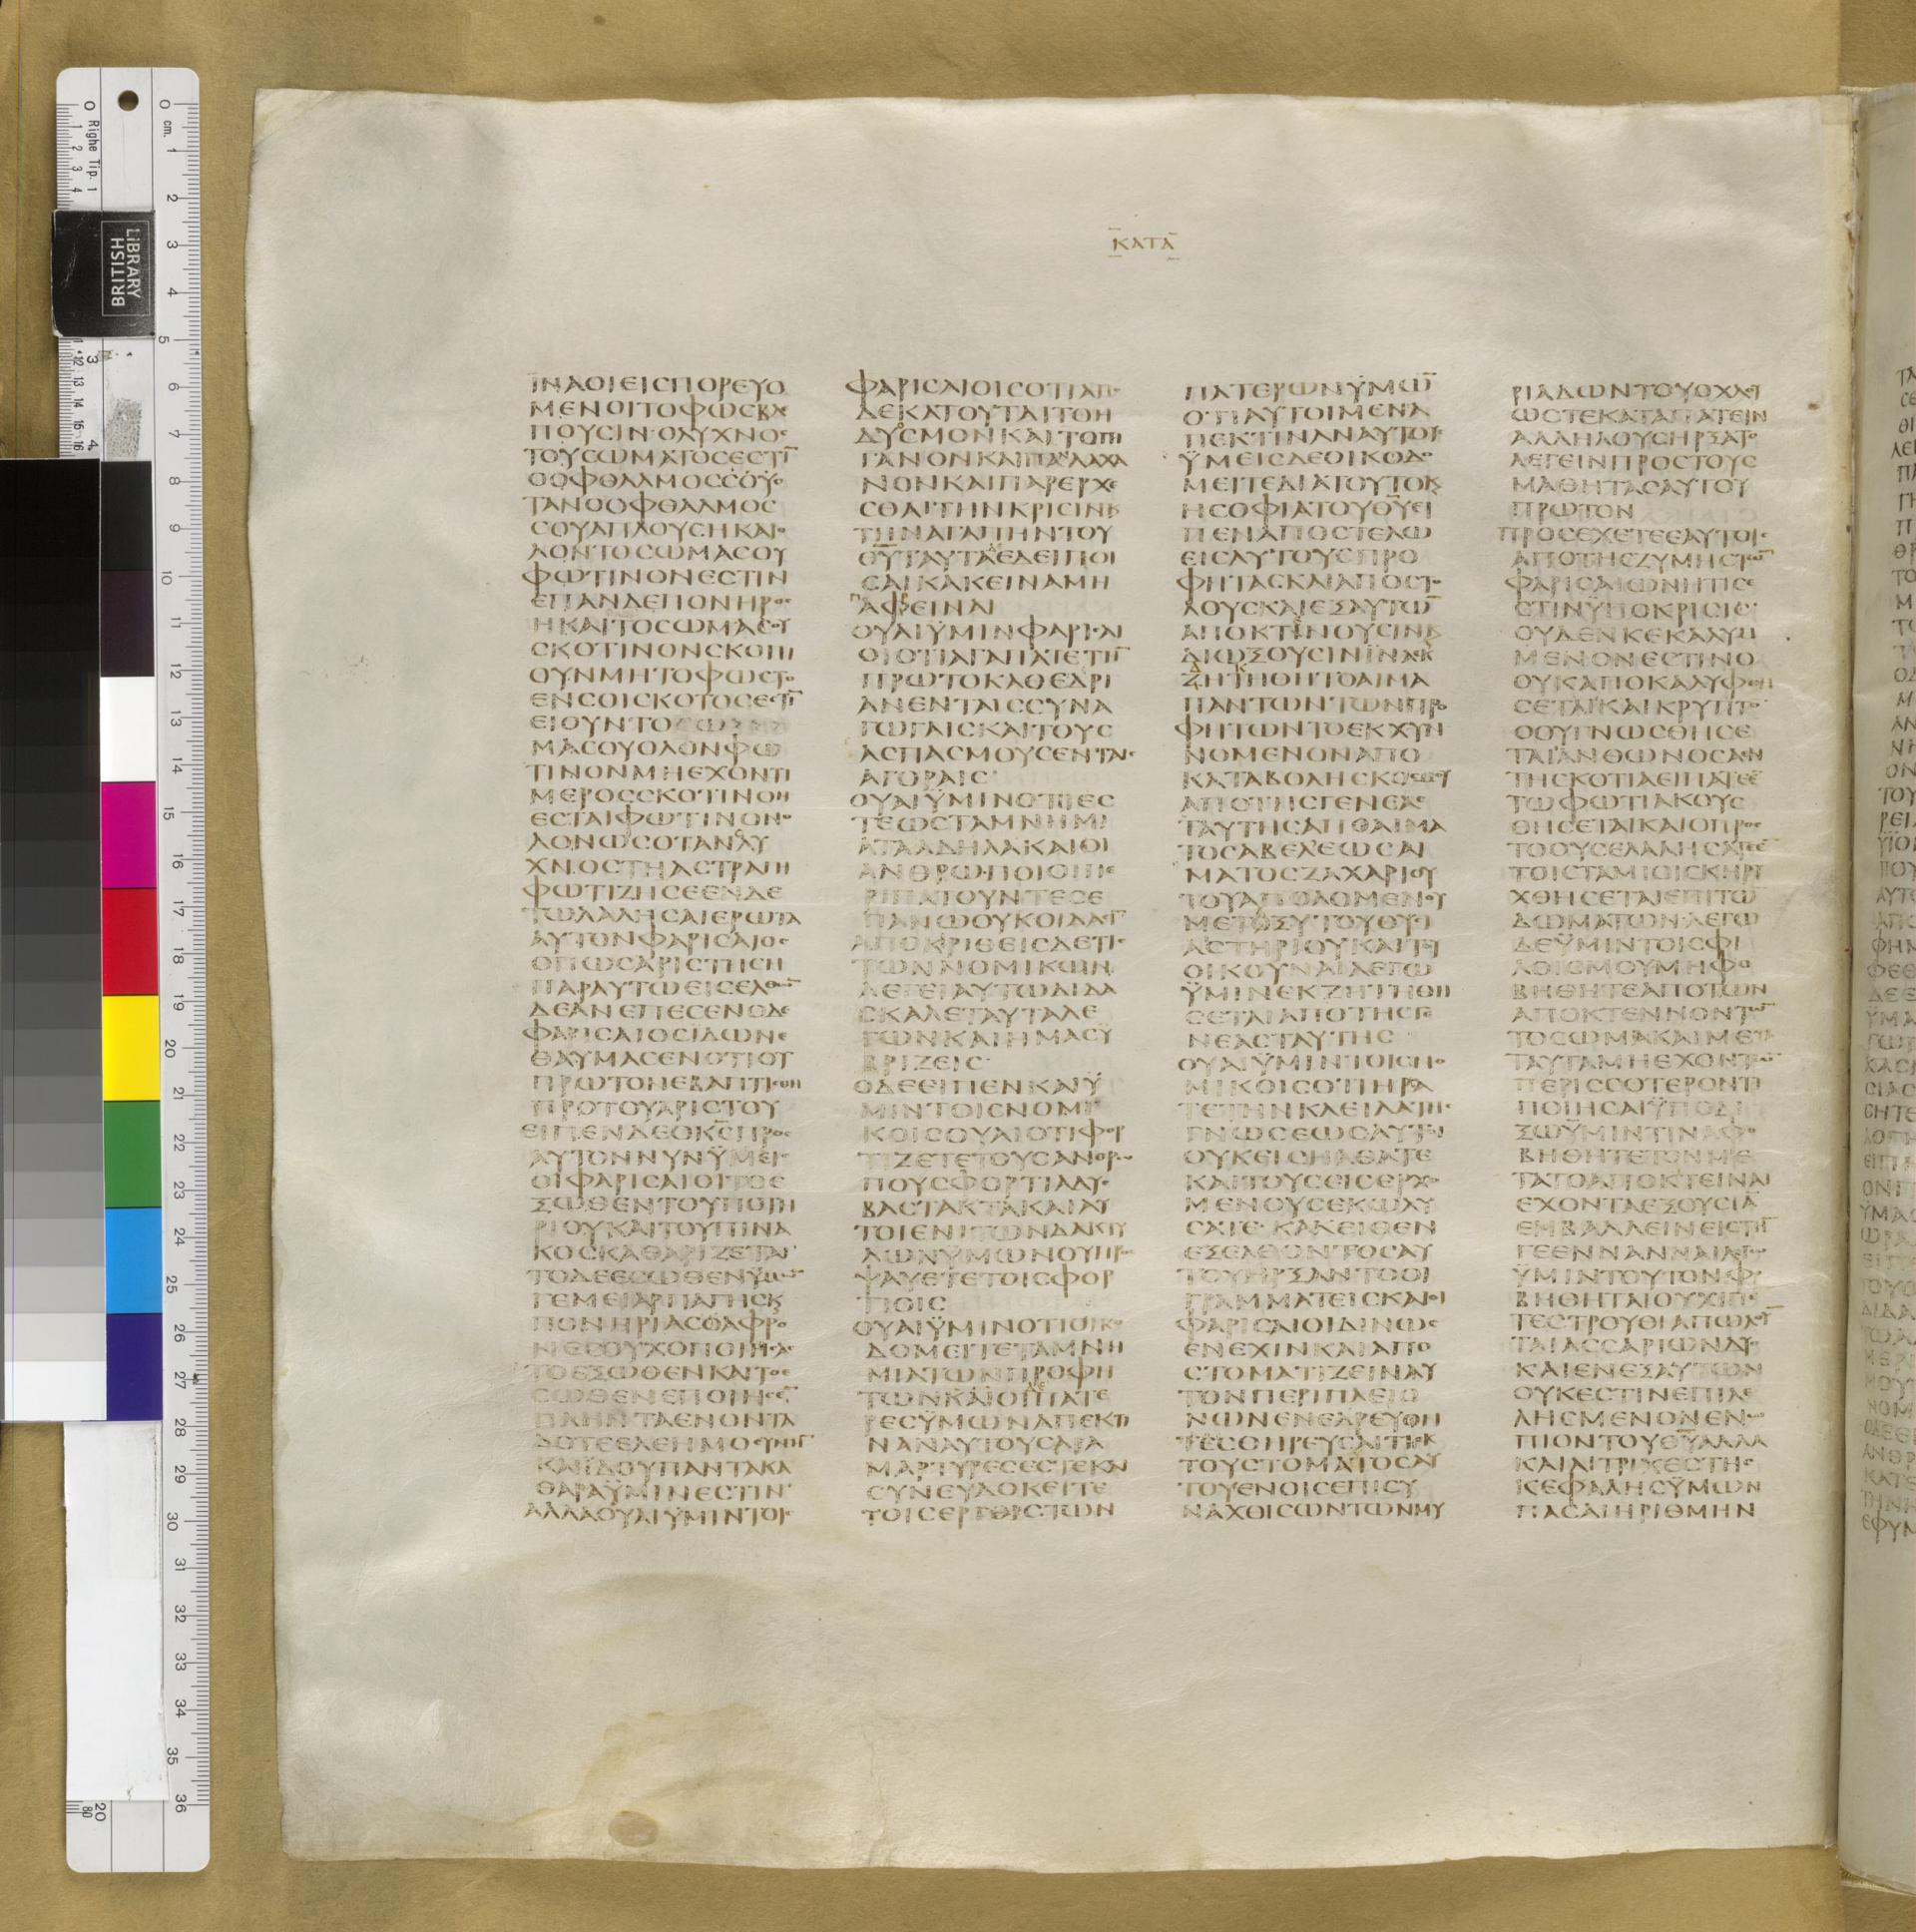 ΚΑΤΑ
ΙΝΑΟΙΕΙΣΠΟΡΕΥΟ
ΜΕΝΟΙΤΟΦΩΣΒΛΕ
ΠΟΥΣΙΝ·ΟΛΥΧΝΟΣ
ΤΟΥΣΩΜΑΤΟΣΕΣΤΙ̅
ΟΟΦΘΑΛΜΟΣΣΟΥΟ
ΤΑΝΟΟΦΘΑΛΜΟΣ
ΣΟΥΑΠΛΟΥΣΗΚΑΙΟ
ΛΟΝΤΟΣΩΜΑΣΟΥ
ΦΩΤΙΝΟΝΕΣΤΙΝ
ΕΠΑΝΔΕΠΟΝΗΡΟΣ
ΗΚΑΙΤΟΣΩΜΑΣΟΥ
ΣΚΟΤΙΝΟΝΣΚΟΠΙ
ΟΥΝΜΗΤΟΦΩΣΤΟ
ΕΝΣΟΙΣΚΟΤΟΣΕΣΤΙ̅
ΕΙΟΥΝΤΟΣΩ
ΜΑΣΟΥΟΛΟΝΦΩ
ΤΙΝΟΝΜΗΕΧΟΝΤΙ
ΜΕΡΟΣΣΚΟΤΙΝΟΝ
ΕΣΤΑΙΦΩΤΙΝΟΝΟ
ΛΟΝΩΣΟΤΑΝΟΛΥ
ΧΝΟΣΤΗΑΣΤΡΑΠΗ
ΦΩΤΙΖΗΣΕΕΝΔΕ
ΤΩΛΑΛΗΣΑΙΕΡΩΤΑ
ΑΥΤΟΝΦΑΡΙΣΑΙΟΣ
ΟΠΩΣΑΡΙΣΤΗΣΗ
ΠΑΡΑΥΤΩΕΙΣΕΛΘΩ̅
ΔΕΑΝΕΠΕΣΕΝΟΔΕ
ΦΑΡΙΣΑΙΟΣΙΔΩΝΕ
ΘΑΥΜΑΣΕΝΟΤΙΟΥ
ΠΡΩΤΟΝΕΒΑΠΤΙΣΘΗ
ΠΡΟΤΟΥΑΡΙΣΤΟΥ
ΕΙΠΕΝΔΕΟΚ̅Σ̅ΠΡΟΣ
ΑΥΤΟΝΝΥΝΫΜΕΙΣ
ΟΙΦΑΡΙΣΑΙΟΙΤΟΕ
ΞΩΘΕΝΤΟΥΠΟΤΗ
ΡΙΟΥΚΑΙΤΟΥΠΙΝΑ
ΚΟΣΚΑΘΑΡΙΖΕΤΑΙ
ΤΟΔΕΕΣΩΘΕΝΫΜΩ̅
ΓΕΜΕΙΑΡΠΑΓΗΣΚ
ΠΟΝΗΡΙΑΣΟΑΦΡΟ
ΝΕΣΟΥΧΟΠΟΙΗΣΑΣ
ΤΟΕΞΩΘΕΝΚΑΙΤΟΕ
ΣΩΘΕΝΕΠΟΙΗΣΕ̅
ΠΛΗΝΤΑΕΝΟΝΤΑ
ΔΟΤΕΕΛΕΗΜΟΣΥΝΗ̅
ΚΑΙΪΔΟΥΠΑΝΤΑΚΑ
ΘΑΡΑΫΜΙΝΕΣΤΙΝ
ΑΛΛΑΟΥΑΙΫΜΙΝΤΟΙΣ
ΦΑΡΙΣΑΙΟΙΣΟΤΙΑΠΟ
ΔΕΚΑΤΟΥΤΑΙΤΟΗ
ΔΥΟΣΜΟΝΚΑΙΤΟΠΗ
ΓΑΝΟΝΚΑΙΠΑΝΛΑΧΑ
ΝΟΝΚΑΙΠΑΡΕΡΧΕ
ΣΘΑΙΤΗΝΚΡΙΣΙΝΚ
ΤΗΝΑΓΑΠΗΝΤΟΥ
Θ̅Υ̅ΤΑΥΤΑΕΔΕΙΠΟΙ
ΣΑΙΚΑΚΕΙΝΑΜΗ
ΠΑΦΕΙΝΑΙ
ΟΥΑΙΫΜΙΝΦΑΡΙΣΑΙ
ΟΙΟΤΙΑΓΑΠΑΤΕΤΗ̅
ΠΡΩΤΟΚΑΘΕΔΡΙ
ΑΝΕΝΤΑΙΣΣΥΝΑ
ΓΩΓΑΙΣΚΑΙΤΟΥΣ
ΑΣΠΑΣΜΟΥΣΕΝΤΑΙΣ
ΑΓΟΡΑΙΣ
ΟΥΑΙΫΜΙΝΟΤΙΕΣ
ΤΕΩΣΤΑΜΝΗΜΙ
ΑΤΑΑΔΗΛΑΚΑΙΟΙ
ΑΝΘΡΩΠΟΙΟΙΠΕ
ΡΙΠΑΤΟΥΝΤΕΣΕ
ΠΑΝΩΟΥΚΟΙΔΑΣΙ̅
ΑΠΟΚΡΙΘΕΙΣΔΕΤΙΣ
ΤΩΝΝΟΜΙΚΩΝ
ΛΕΓΕΙΑΥΤΩΔΙΔΑ
ΣΚΑΛΕΤΑΥΤΑΛΕ
ΓΩΝΚΑΙΗΜΑΣΫ
ΒΡΙΖΕΙΣ
ΟΔΕΕΙΠΕΝΚΑΙΫ
ΜΙΝΤΟΙΣΝΟΜΙ
ΚΟΙΣΟΥΑΙΟΤΙΦΟΡ
ΤΙΖΕΤΕΤΟΥΣΑΝΘΡΩ
ΠΟΥΣΦΟΡΤΙΑΔΥΣ
ΒΑΣΤΑΚΤΑΚΑΙΑΥ
ΤΟΙΕΝΙΤΩΝΔΑΚΤΥ
ΛΩΝΫΜΩΝΟΥΠΡΟ
ΨΑΥΕΤΕΤΟΙΣΦΟΡ
ΤΙΟΙΣ
ΟΥΑΙΫΜΙΝΟΤΙΟΙΚΟ
ΔΟΜΕΙΤΕΤΑΜΝΗ
ΜΙΑΤΩΝΠΡΟΦΗ
ΤΩΝΚΑΙΟΙΠΑΤΕ
ΡΕΣΫΜΩΝΑΠΕΚΤΙ
ΝΑΝΑΥΤΟΥΣΑΡΑ
ΜΑΡΤΥΡΕΣΕΣΤΕΚΑΙ
ΣΥΝΕΥΔΟΚΕΙΤΕ
ΤΟΙΣΕΡΓΟΙΣΤΩΝ
ΠΑΤΕΡΩΝΫΜΩ̅
ΟΤΙΑΥΤΟΙΜΕΝΑ
ΠΕΚΤΙΝΑΝΑΥΤΟΥΣ
ΫΜΕΙΣΔΕΟΙΚΟΔΟ
ΜΕΙΤΕΔΙΑΤΟΥΤΟΚ
ΗΣΟΦΙΑΤΟΥΘ̅Υ̅ΕΙ
ΠΕΝΑΠΟΣΤΕΛΩ
ΕΙΣΑΥΤΟΥΣΠΡΟ
ΦΗΤΑΣΚΑΙΑΠΟΣΤΟ
ΛΟΥΣΚΑΙΕΞΑΥΤΩ̅
ΑΠΟΚΤΕΝΟΥΣΙΝΚ
ΔΙΩΞΟΥΣΙΝΙΝΑΕΚ
ΖΗΤΗΘΗΤΟΑΙΜΑ
ΠΑΝΤΩΝΤΩΝΠΡΟ
ΦΗΤΩΝΤΟΕΚΧΥΝ
ΝΟΜΕΝΟΝΑΠΟ
ΚΑΤΑΒΟΛΗΣΚΟΣΜΟΥ
ΑΠΟΤΗΣΓΕΝΕΑΣ
ΤΑΥΤΗΣΑΠΟΑΙΜΑ
ΤΟΣΑΒΕΛΕΩΣΑΙ
ΜΑΤΟΣΖΑΧΑΡΙΟΥ
ΤΟΥΑΠΟΛΟΜΕΝΟΥ
ΜΕΤΟΞΥΤΟΥΘΥΣΙ
ΑΣΤΗΡΙΟΥΚΑΙΤΟΥ
ΟΙΚΟΥΝΑΙΛΕΓΩ
ΫΜΙΝΕΚΖΗΤΗΘΗ
ΣΕΤΑΙΑΠΟΤΗΣΓΕ
ΝΕΑΣΤΑΥΤΗΣ
ΟΥΑΙΫΜΙΝΤΟΙΣΝΟ
ΜΙΚΟΙΣΟΤΙΗΡΑ
ΤΕΤΗΝΚΛΕΙΔΑΤΗΣ
ΓΝΩΣΕΩΣΑΥΤΟΙ
ΟΥΚΕΙΣΗΛΘΑΤΕ
ΚΑΙΤΟΥΣΕΙΣΕΡΧΟ
ΜΕΝΟΥΣΕΚΩΛΥ
ΣΑΤΕ·ΚΑΚΕΙΘΕΝ
ΕΞΕΛΘΟΝΤΟΣΑΥ
ΤΟΥΗΡΞΑΝΤΟΟΙ
ΓΡΑΜΜΑΤΕΙΣΚΑΙΟΙ
ΦΑΡΙΣΑΙΟΙΔΙΝΩΣ
ΕΝΕΧΙΝΚΑΙΑΠΟ
ΣΤΟΜΑΤΙΖΕΙΝΑΥ
ΤΟΝΠΕΡΙΠΛΕΙΟ
ΝΩΝΕΝΕΔΡΕΥΟΝ
ΤΕΣΘΗΡΕΥΣΑΙΤΙΕΚ
ΤΟΥΣΤΟΜΑΤΟΣΑΥ
ΤΟΥΕΝΟΙΣΕΠΙΣΥ
ΝΑΧΘΙΣΩΝΤΩΝΜΥ
ΡΙΑΔΩΝΤΟΥΟΧΛΟΥ
ΩΣΤΕΚΑΤΑΠΑΤΕΙΝ
ΑΛΛΗΛΟΥΣΗΡΞΑΤΟ
ΛΕΓΕΙΝΠΡΟΣΤΟΥΣ
ΜΑΘΗΤΑΣΑΥΤΟΥ
ΠΡΩΤΟΝ
ΠΡΟΣΕΧΕΤΕΕΑΥΤΟΙΣ
ΑΠΟΤΗΣΖΥΜΗΣΤΩ̅
ΦΑΡΙΣΑΙΩΝΗΤΙΣΕ
ΣΤΙΝΫΠΟΚΡΙΣΙΣ·
ΟΥΔΕΝΚΕΚΑΛΥΜ
ΜΕΝΟΝΕΣΤΙΝΟ
ΟΥΚΑΠΟΚΑΛΥΦΘΗ
ΣΕΤΑΙΚΑΙΚΡΥΠΤΟ
ΟΟΥΓΝΩΣΘΗΣΕ
ΤΑΙΑΝΘΩΝΟΣΑΕΝ
ΤΗΣΚΟΤΙΑΕΙΠΑΤΕΕ̅
ΤΩΦΩΤΙΑΚΟΥΣ
ΘΗΣΕΤΑΙΚΑΙΟΠΡΟΣ
ΤΟΟΥΣΕΛΑΛΗΣΑΤΕΕ̅
ΤΟΙΣΤΑΜΙΟΙΣΚΗΡΥ
ΧΘΗΣΕΤΑΙΕΠΙΤΩ̅
ΔΩΜΑΤΩΝ·ΛΕΓΩ
ΔΕΫΜΙΝΤΟΙΣΦΙ
ΛΟΙΣΜΟΥΜΗΦΟ
ΒΗΘΗΤΕΑΠΟΤΩΝ
ΑΠΟΚΤΕΝΝΟΝΤΩ̅
ΤΟΣΩΜΑΚΑΙΜΕΤΑ
ΤΑΥΤΑΜΗΕΧΟΝΤΩ̅
ΠΕΡΙΣΣΟΤΕΡΟΝΤΙ
ΠΟΙΗΣΑΙΫΠΟΔΙ
ΞΩΫΜΙΝΤΙΝΑΦΟ
ΒΗΘΗΤΕΤΟΝΜΕ
ΤΑΤΟΑΠΟΚΤΕΙΝΑΙ
ΕΧΟΝΤΑΕΞΟΥΣΙΑ̅
ΕΜΒΑΛΛΕΙΝΕΙΣΤΗ̅
ΓΕΕΝΝΑΝΝΑΙΛΕΓΩ
ΫΜΙΝΤΟΥΤΟΝΦΟ
ΒΗΘΗΤΑΙΟΥΧΙΠΕ
ΤΕΣΤΡΟΥΘΙΑΠΩΛΟΥ̅
ΤΑΙΑΣΣΑΡΙΩΝΔΥΟ
ΚΑΙΕΝΕΞΑΥΤΩΝ
ΟΥΚΕΣΤΙΝΕΠΙΛΕ
ΛΗΣΜΕΝΟΝΕΝΩ
ΠΙΟΝΤΟΥΘ̅Υ̅ΑΛΛΑ
ΚΑΙΑΙΤΡΙΧΕΣΤΗΣ
ΚΕΦΑΛΗΣΫΜΩΝ
ΠΑΣΑΙΗΡΙΘΜΗΝ